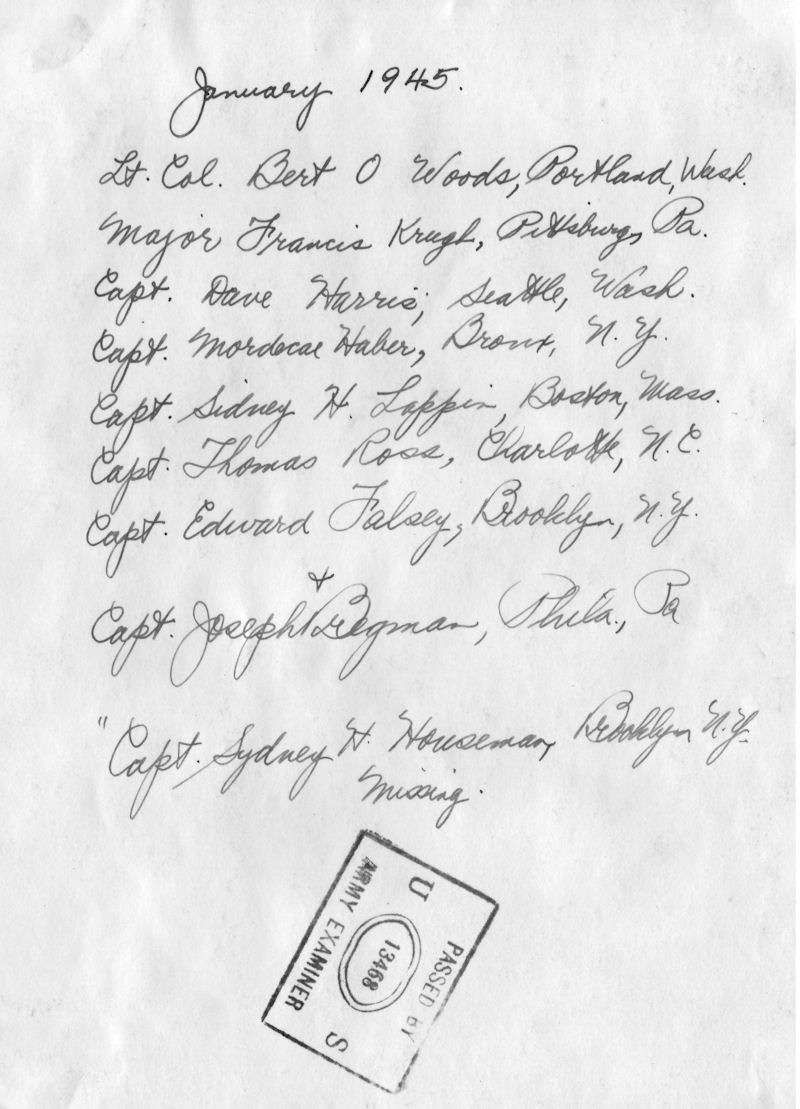 January 1945.
Lt. Col. Bert O Woods, Portland, Wash.
Major Francis Krugh, Pittsburg, Pa.
Capt. Dave Harris, Seattle, Wash.
Capt. Mordecae Haber, Bronx, N. Y.
Capt. Sidney H. Lappin, Boston, Mass.
Capt. Thomas Ross, Charlotte, N.C.
Capt. Edward Falsey, Brooklyn, N.Y.
+
Capt. Joseph Bregman, Phila., Pa
"Capt. Sydney H. Houseman, Brooklyn N.Y.
Missing.
PASSED BY
U 13468 S
ARMY EXAMINER